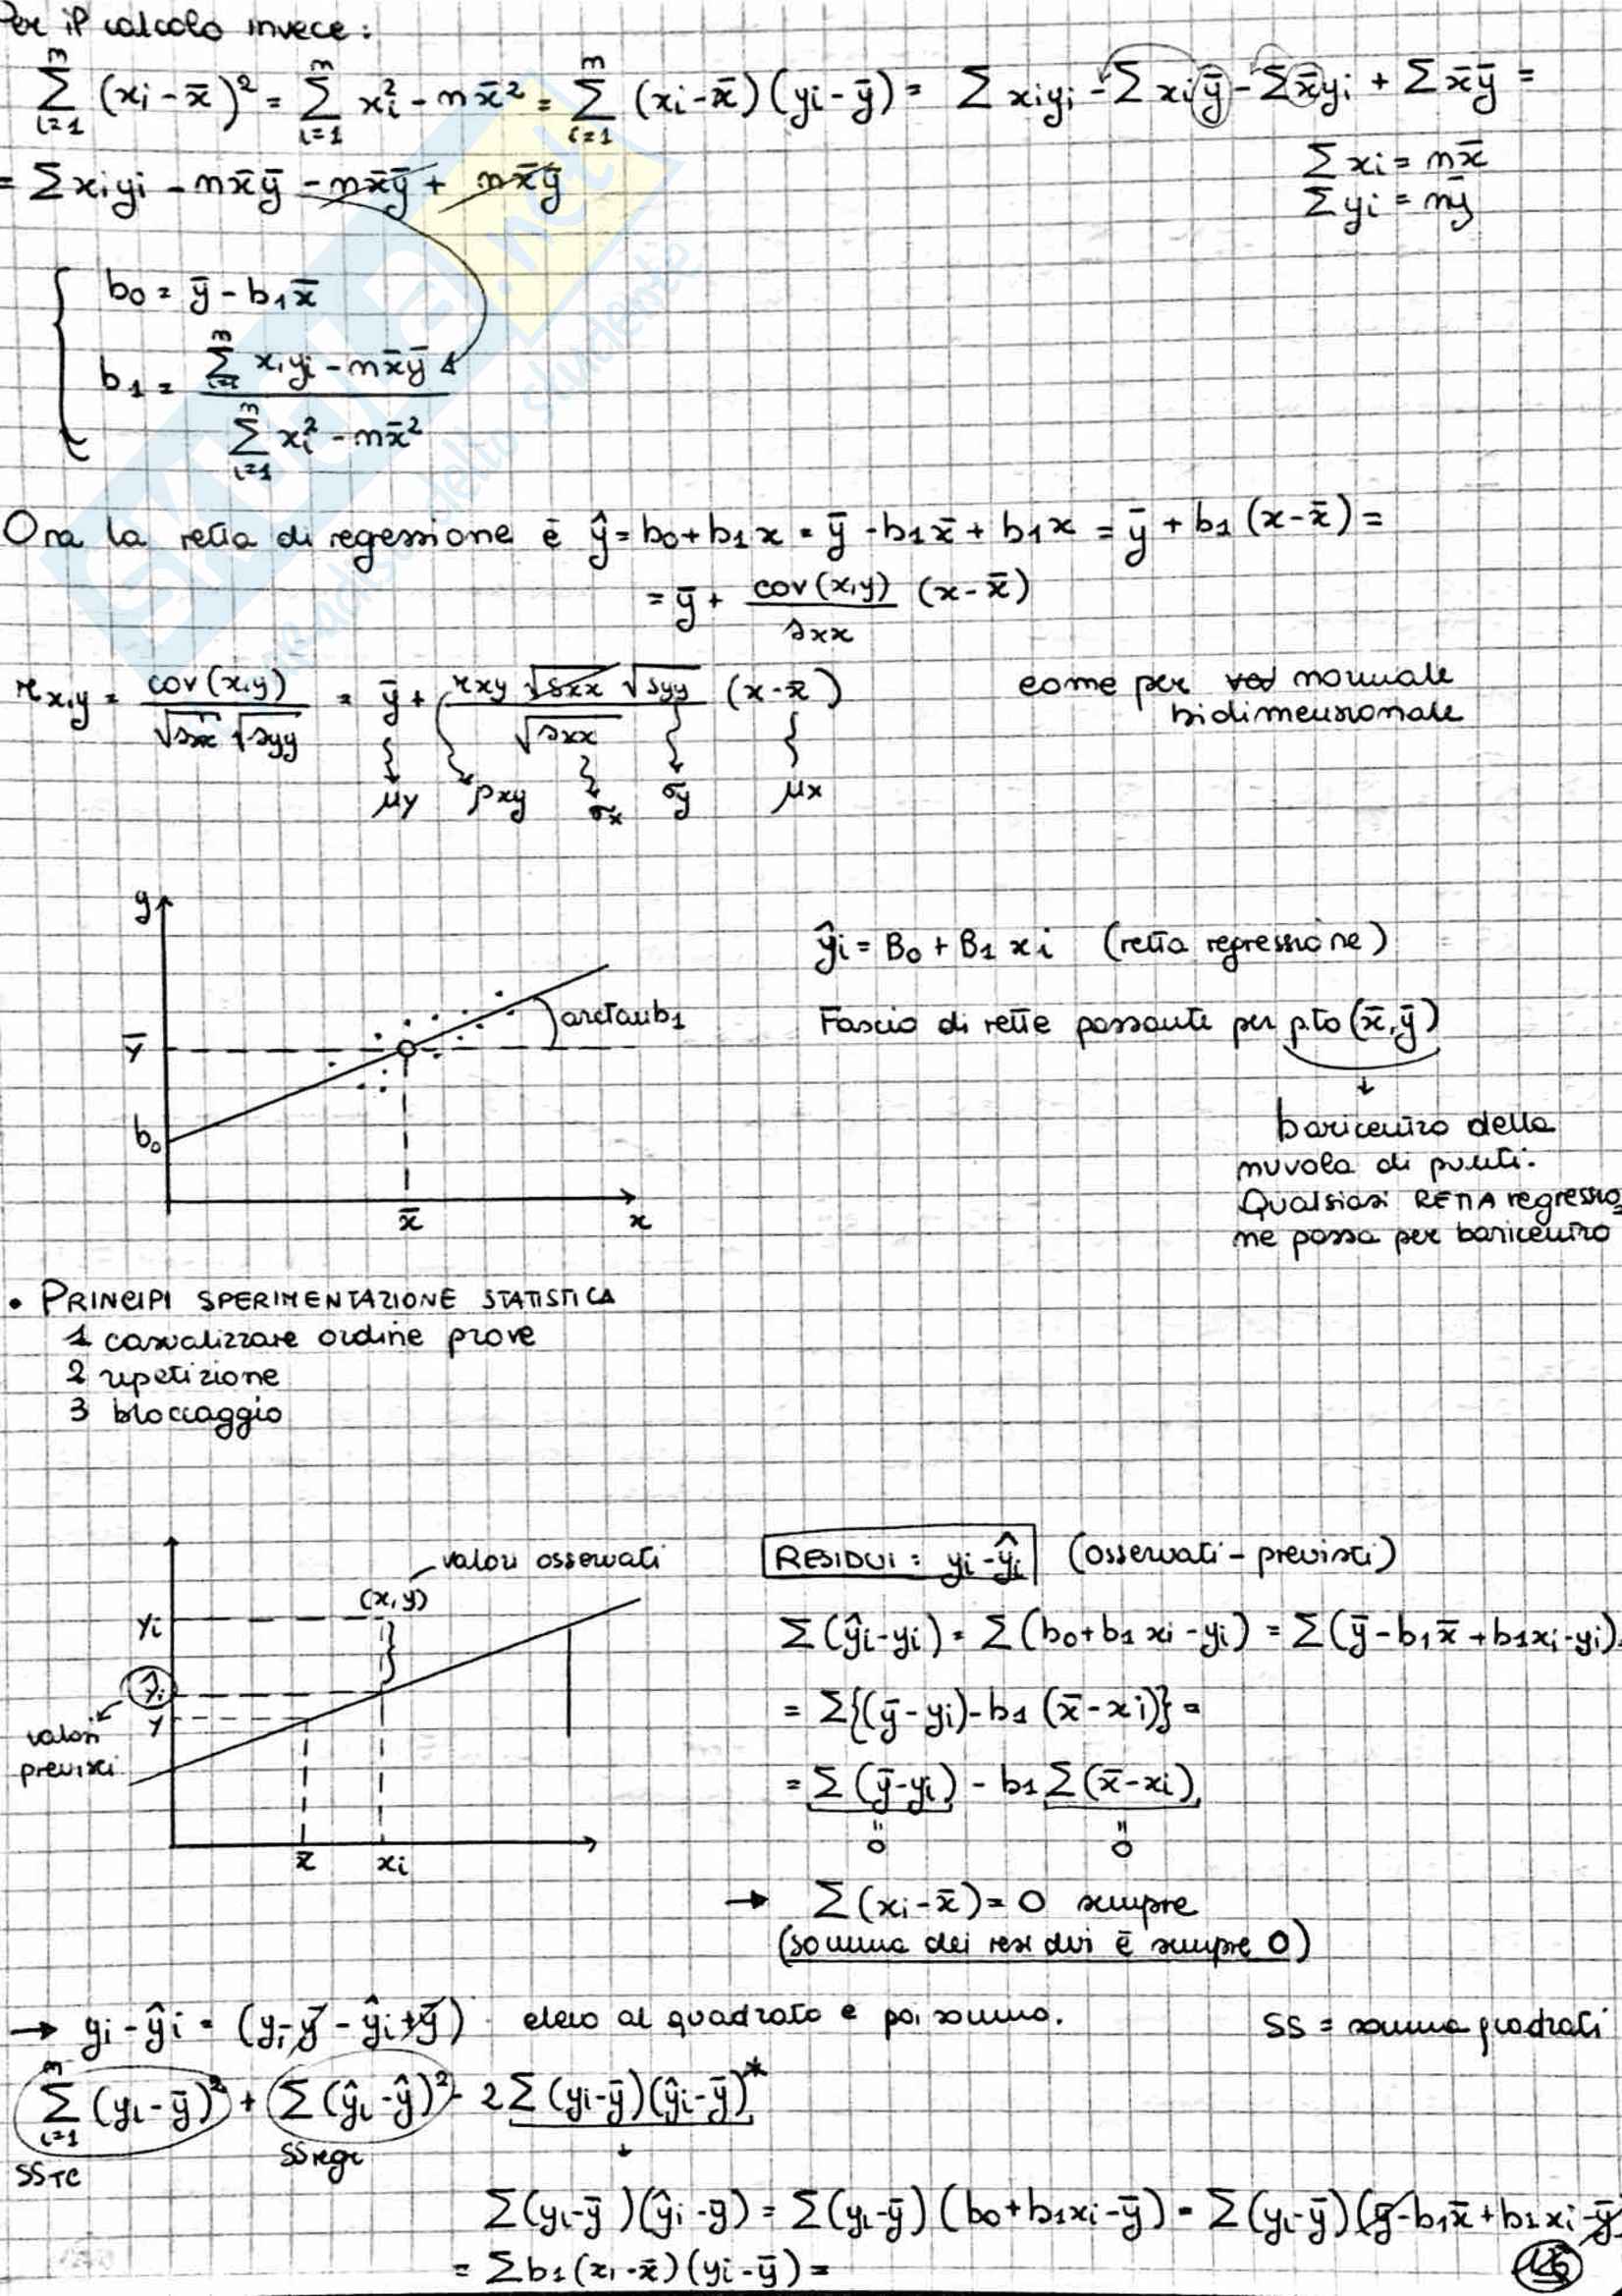 Per il calcolo invece:
n∑i=1 (xi - x̄)² = n∑i=1 xi² - nx̄² = n∑i=1 (xi - x̄)(yi - ȳ) = ∑ xiyi - ∑ xiȳ - ∑ x̄yi + ∑ x̄ȳ =
= ∑ xiyi - nx̄ȳ - nx̄ȳ + nx̄ȳ
∑ xi = nx̄
∑ yi = nȳ
b0 = ȳ - b1x̄
b1 = (n∑i=1 xiyi - nx̄ȳ) / (n∑i=1 xi² - nx̄²)
Ora la retta di regessione è ŷ = b0 + b1x = ȳ - b1x̄ + b1x = ȳ + b1 (x - x̄) =
= ȳ + cov(x,y) / sxx (x - x̄)
rx,y = cov(x,y) / √sxx √syy = ȳ + rxy √sxx √syy / √sxx (x - x̄) come per normale
bidimensionale
μy ρxy σx σy μx
y
ŷi = B0 + B1 xi (retta regressione)
arctan b1
Fascio di rette passante per p.to (x̄, ȳ)
ȳ
b0
baricentro della
nuvola di punti.
Qualsiasi RETTA regressio
ne passa per baricentro
x̄ x
• PRINCIPI SPERIMENTAZIONE STATISTICA
1 casualizzare ordine prove
2 ripetizione
3 bloccaggio
valori osservati
RESIDUI: yi - ŷi (osservati - previsti)
(x, y)
yi
∑ (ŷi - yi) = ∑ (b0 + b1 xi - yi) = ∑ (ȳ - b1x̄ + b1xi - yi) =
ŷi
ȳ
= ∑{(ȳ - yi) - b1 (x̄ - xi)} =
valori
previsti
= ∑ (ȳ - yi) - b1 ∑ (x̄ - xi)
" "
0 0
x̄ xi
→ ∑ (xi - x̄) = 0 sempre
(somma dei residui è sempre 0)
→ yi - ŷi = (yi - ȳ - ŷi + ȳ) elevo al quadrato e poi sommo. SS = somma quadrati
n∑i=1 (yi - ȳ)² + ∑ (ŷi - ŷ)² - 2∑ (yi - ȳ)(ŷi - ȳ)*
SSTC SSregr
∑ (yi - ȳ)(ŷi - ȳ) = ∑ (yi - ȳ) (b0 + b1xi - ȳ) = ∑ (yi - ȳ)(ȳ - b1x̄ + b1xi - ȳ)
= ∑ b1 (xi - x̄) (yi - ȳ) =